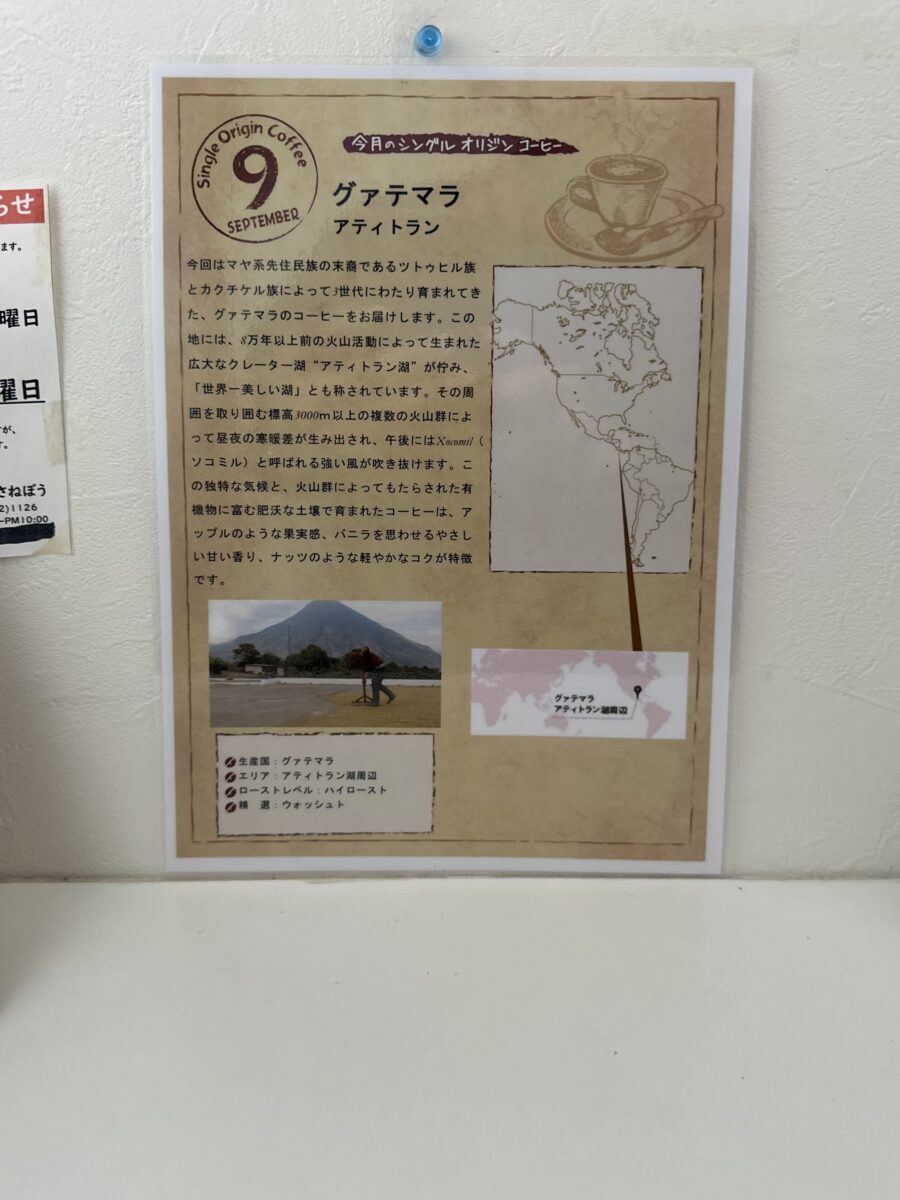 Single Origin Coffee
9
SEPTEMBER
今月のシングル オリジン コーヒー
グァテマラ
アティトラン
今回はマヤ系先住民族の末裔であるツトゥヒル族
とカクチケル族によって3世代にわたり育まれてき
た、グァテマラのコーヒーをお届けします。この
地には、8万年以上前の火山活動によって生まれた
広大なクレーター湖“アティトラン湖”が佇み、
「世界一美しい湖」とも称されています。その周
囲を取り囲む標高3000m以上の複数の火山群によ
って昼夜の寒暖差が生み出され、午後にはXocomil（
ソコミル）と呼ばれる強い風が吹き抜けます。こ
の独特な気候と、火山群によってもたらされた有
機物に富む肥沃な土壌で育まれたコーヒーは、ア
ップルのような果実感、バニラを思わせるやさし
い甘い香り、ナッツのような軽やかなコクが特徴
です。
グァテマラ
アティトラン湖周辺
生産国：グァテマラ
エリア：アティトラン湖周辺
ローストレベル：ハイロースト
精　選：ウォッシュト
らせ
ます。
曜日
曜日
が、
す。
さねぼう
2)1126
~PM10:00